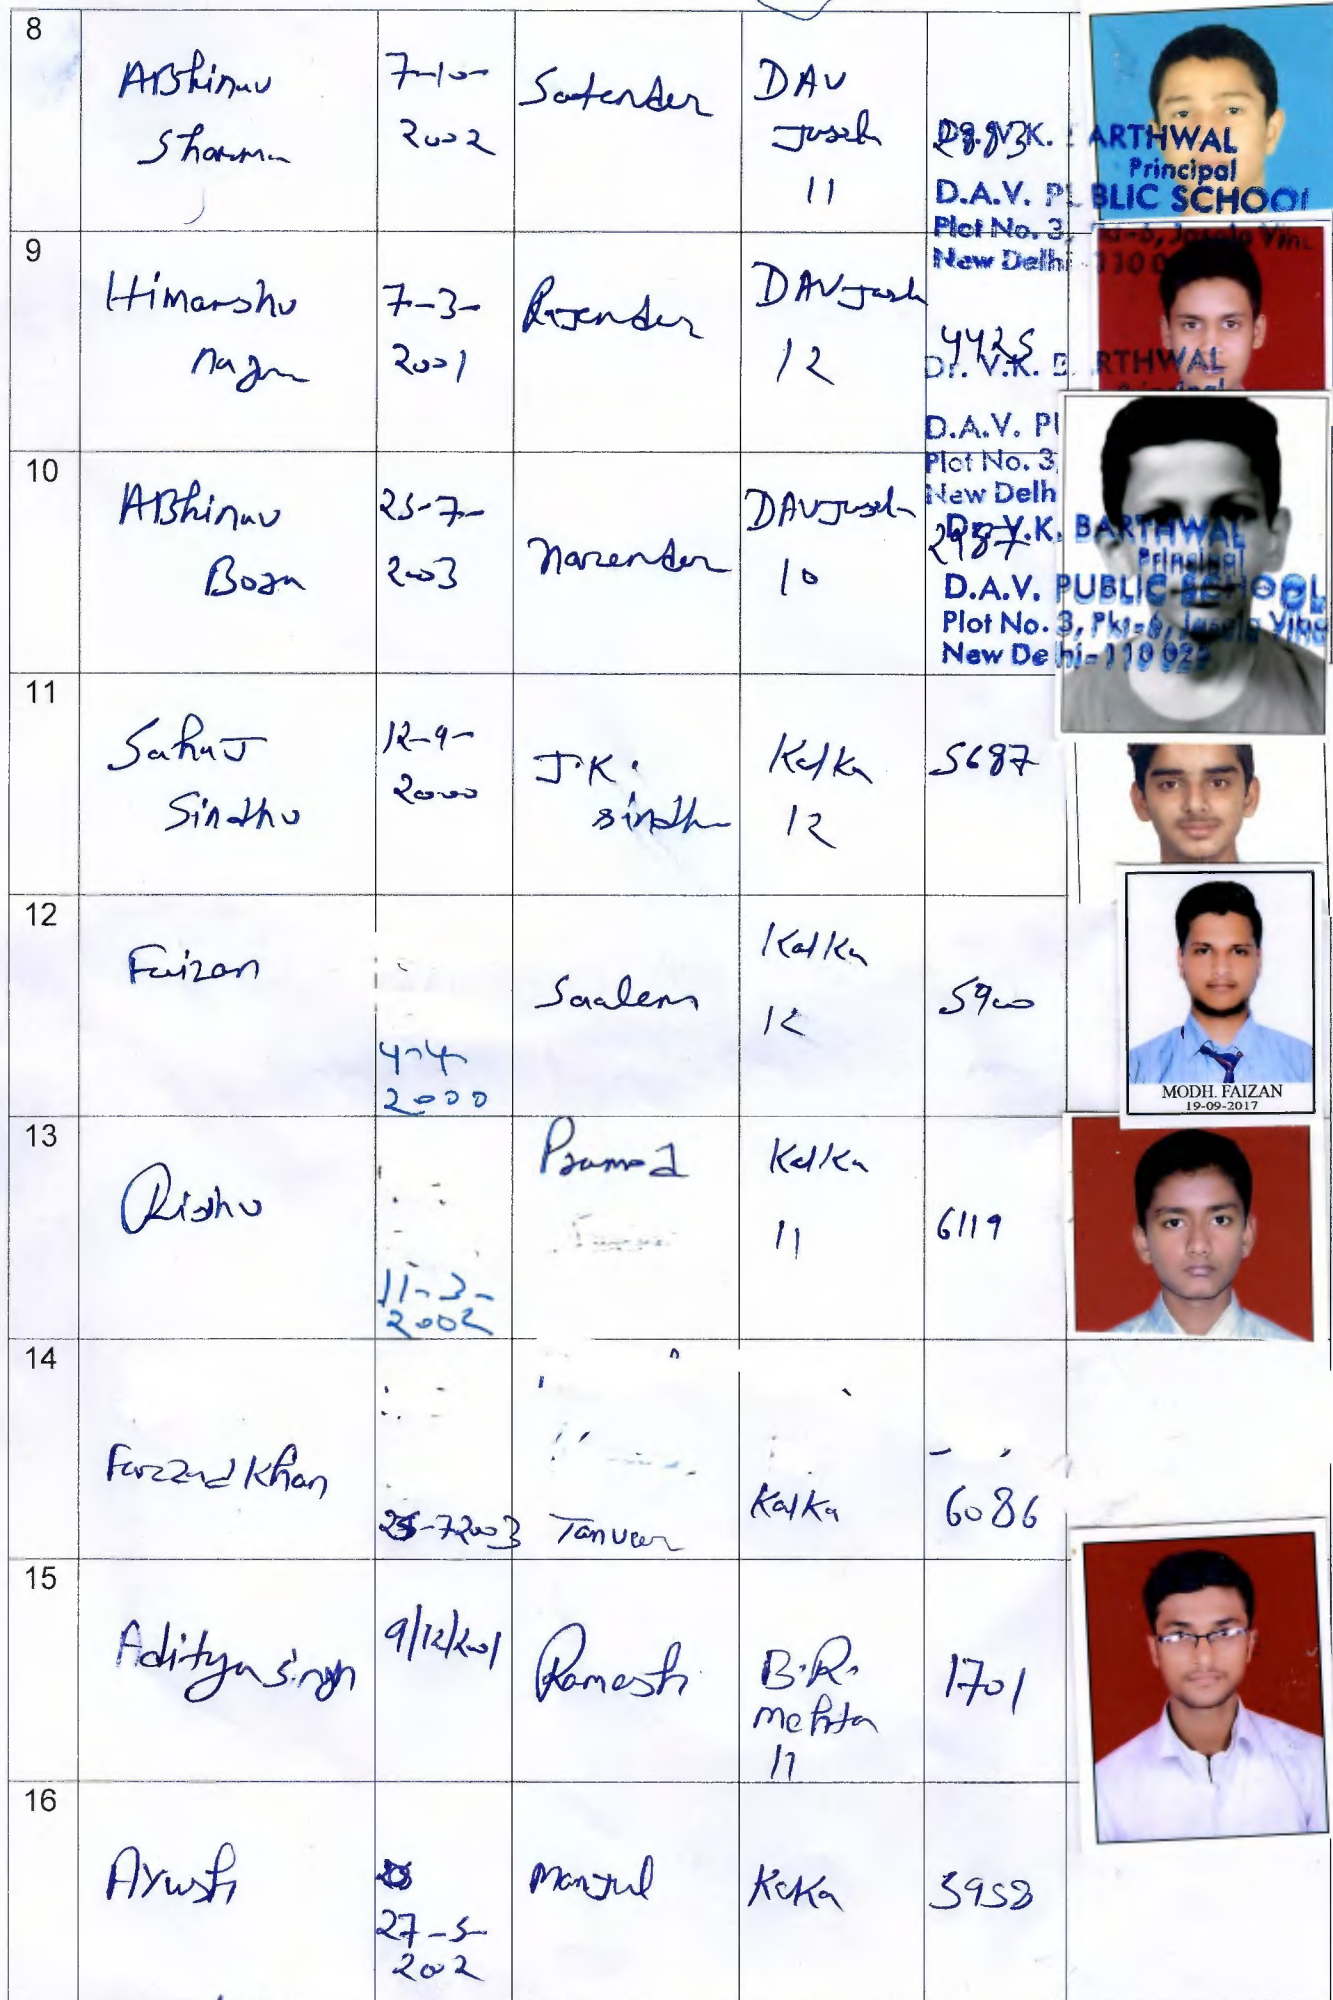 8
Abhinav
Sharma
7-10-
2002
Satender
DAV
Jusola
11
2883
Dr. V.K. BARTHWAL
Principal
D.A.V. PUBLIC SCHOOL
Plot No. 3, Pkt-6, Jasola Vihar
New Delhi-110 0
9
Himanshu
7-3-
2001
Rajender
DAV Jusola
12
4425
Dr. V.K. BARTHWAL
Principal
D.A.V. PU
Plot No. 3,
New Delh
10
Abhinav
25-7-
2003
Narender
DAV Jusola
10
2987
Dr. V.K. BARTHWAL
Principal
D.A.V. PUBLIC SCHOOL
Plot No. 3, Pkt-6, Jasola Viha
New Delhi-110 025
11
Sahuj
Sindhu
12-9-
2000
J.K.
Sindhu
Kalka
12
5687
12
Faizan
4-4-
2000
Saalem
Kalka
12
5900
MODH. FAIZAN
19-09-2017
13
Rishu
11-3-
2002
Pramod
Kalka
11
6119
14
Farzad Khan
25-7 2003
Tanveer
Kalka
6086
15
Aditya Singh
9/12/2001
Ramesh
B.R.
Mehta
11
1701
16
Ayush
27-5-
2002
Manjul
Kalka
5958